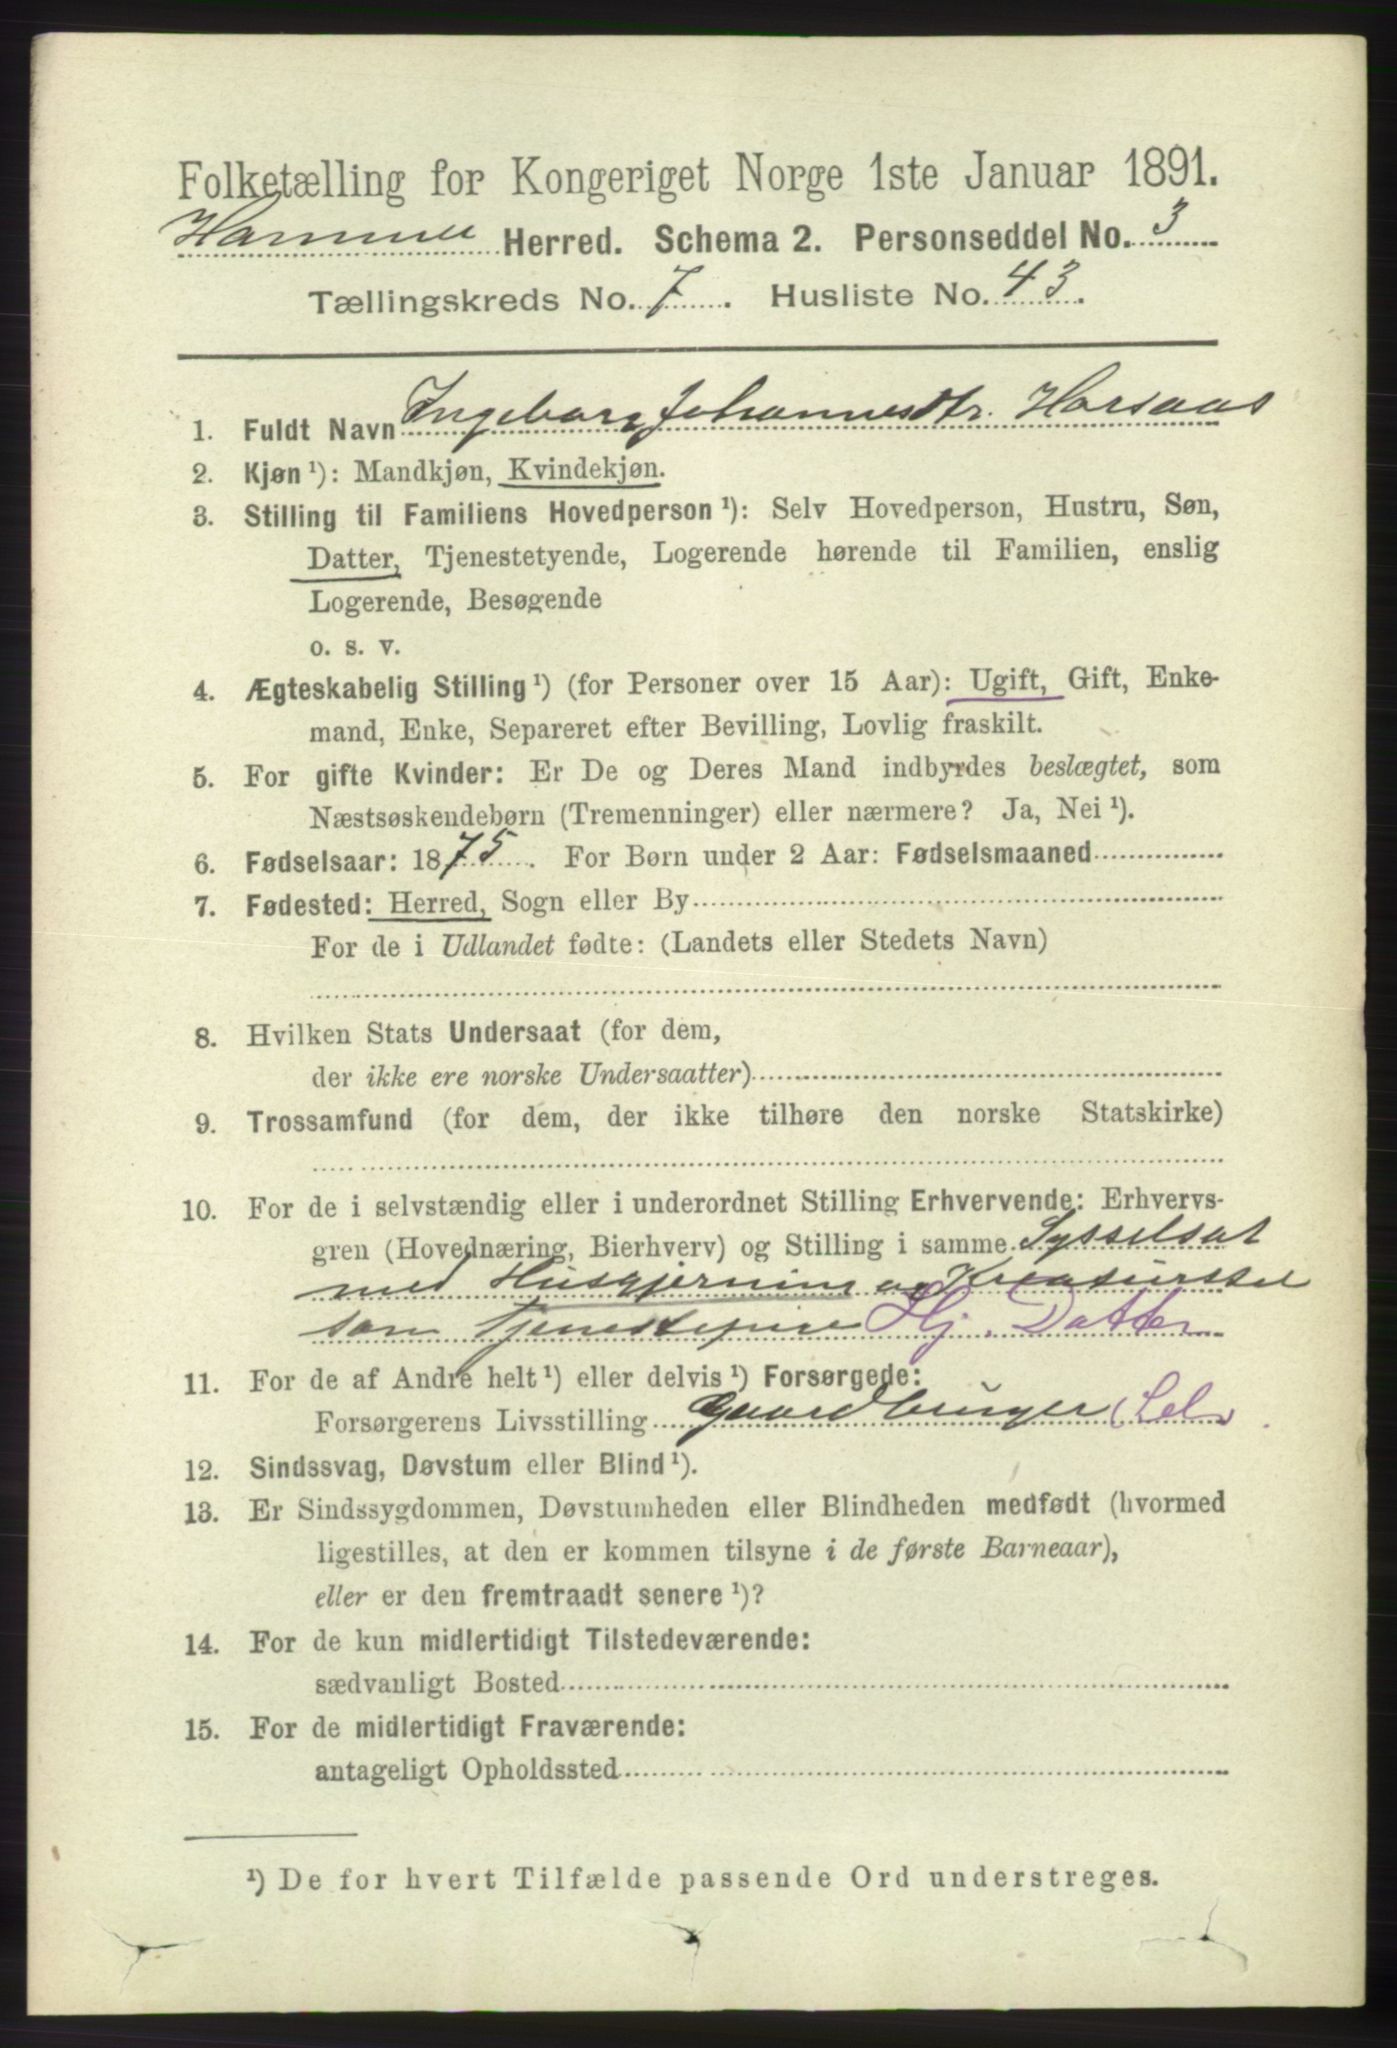 Folketælling for Kongeriget Norge 1ste Januar 1891.
Hammer Herred. Schema 2. Personseddel No. 3
Tællingskreds No. 7. Husliste No. 43.
1. Fuldt Navn Ingeborg Johannesdtr. Horsaas
2. Kjøn ¹): Mandkjøn, Kvindekjøn.
3. Stilling til Familiens Hovedperson ¹): Selv Hovedperson, Hustru, Søn,
Datter, Tjenestetyende, Logerende hørende til Familien, enslig
Logerende, Besøgende
o. s. v.
4. Ægteskabelig Stilling ¹) (for Personer over 15 Aar): Ugift, Gift, Enke-
mand, Enke, Separeret efter Bevilling, Lovlig fraskilt.
5. For gifte Kvinder: Er De og Deres Mand indbyrdes beslægtet, som
Næstsøskendebørn (Tremenninger) eller nærmere? Ja, Nei ¹).
6. Fødselsaar: 1875. For Børn under 2 Aar: Fødselsmaaned
7. Fødested: Herred, Sogn eller By
For de i Udlandet fødte: (Landets eller Stedets Navn)
8. Hvilken Stats Undersaat (for dem,
der ikke ere norske Undersaatter)
9. Trossamfund (for dem, der ikke tilhøre den norske Statskirke)
10. For de i selvstændig eller i underordnet Stilling Erhvervende: Erhvervs-
gren (Hovednæring, Bierhverv) og Stilling i samme Sysselsat
med Husgjerning og Kreaturstel
som Tjenestepige Hj. Datter
11. For de af Andre helt ¹) eller delvis ¹) Forsørgede:
Forsørgerens Livsstilling Gaardbruger (Selv
12. Sindssvag, Døvstum eller Blind ¹).
13. Er Sindssygdommen, Døvstumheden eller Blindheden medfødt (hvormed
ligestilles, at den er kommen tilsyne i de første Barneaar),
eller er den fremtraadt senere ¹)?
14. For de kun midlertidigt Tilstedeværende:
sædvanligt Bosted
15. For de midlertidigt Fraværende:
antageligt Opholdssted
¹) De for hvert Tilfælde passende Ord understreges.